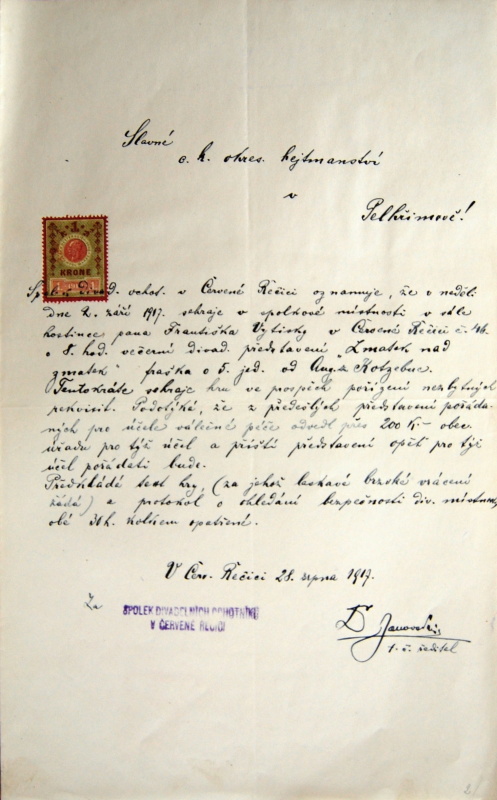 Slavné
c. k. okres. hejtmanství
v
Pelhřimově!
1
KRONE
1 1
Spolek divad. ochot. v Červené Řečici oznamuje, že v neděli
dne 2. září 1917. sehraje v spolkové místnosti v sále
hostince pana Františka Vytisky v Červené Řečici č. 46.
o 8. hod. večerní divad. představení „Zmatek nad
zmatek" fraška o 5. jed. od Aug. Kotzebue.
Tentokráte sehraje hru ve prospěch pořízení nezbytných
rekvisit. Podotýká, že z předešlých představení pořáda-
ných pro účele válečné péče odvedl přes 200 K- obec.
úřadu pro týž účel a příští představení opět pro týž
účel pořádati bude.
Předkládá text hry, (za jehož laskavé brzské vrácení
žádá) a protokol o ohledání bezpečnosti div. místnosti,
obé 30 h. kolkem opatřené.
V Čer. Řečici 28. srpna 1917.
Za
SPOLEK DIVADELNÍCH OCHOTNÍKŮ
V ČERVENÉ ŘEČICI
t. č. ředitel